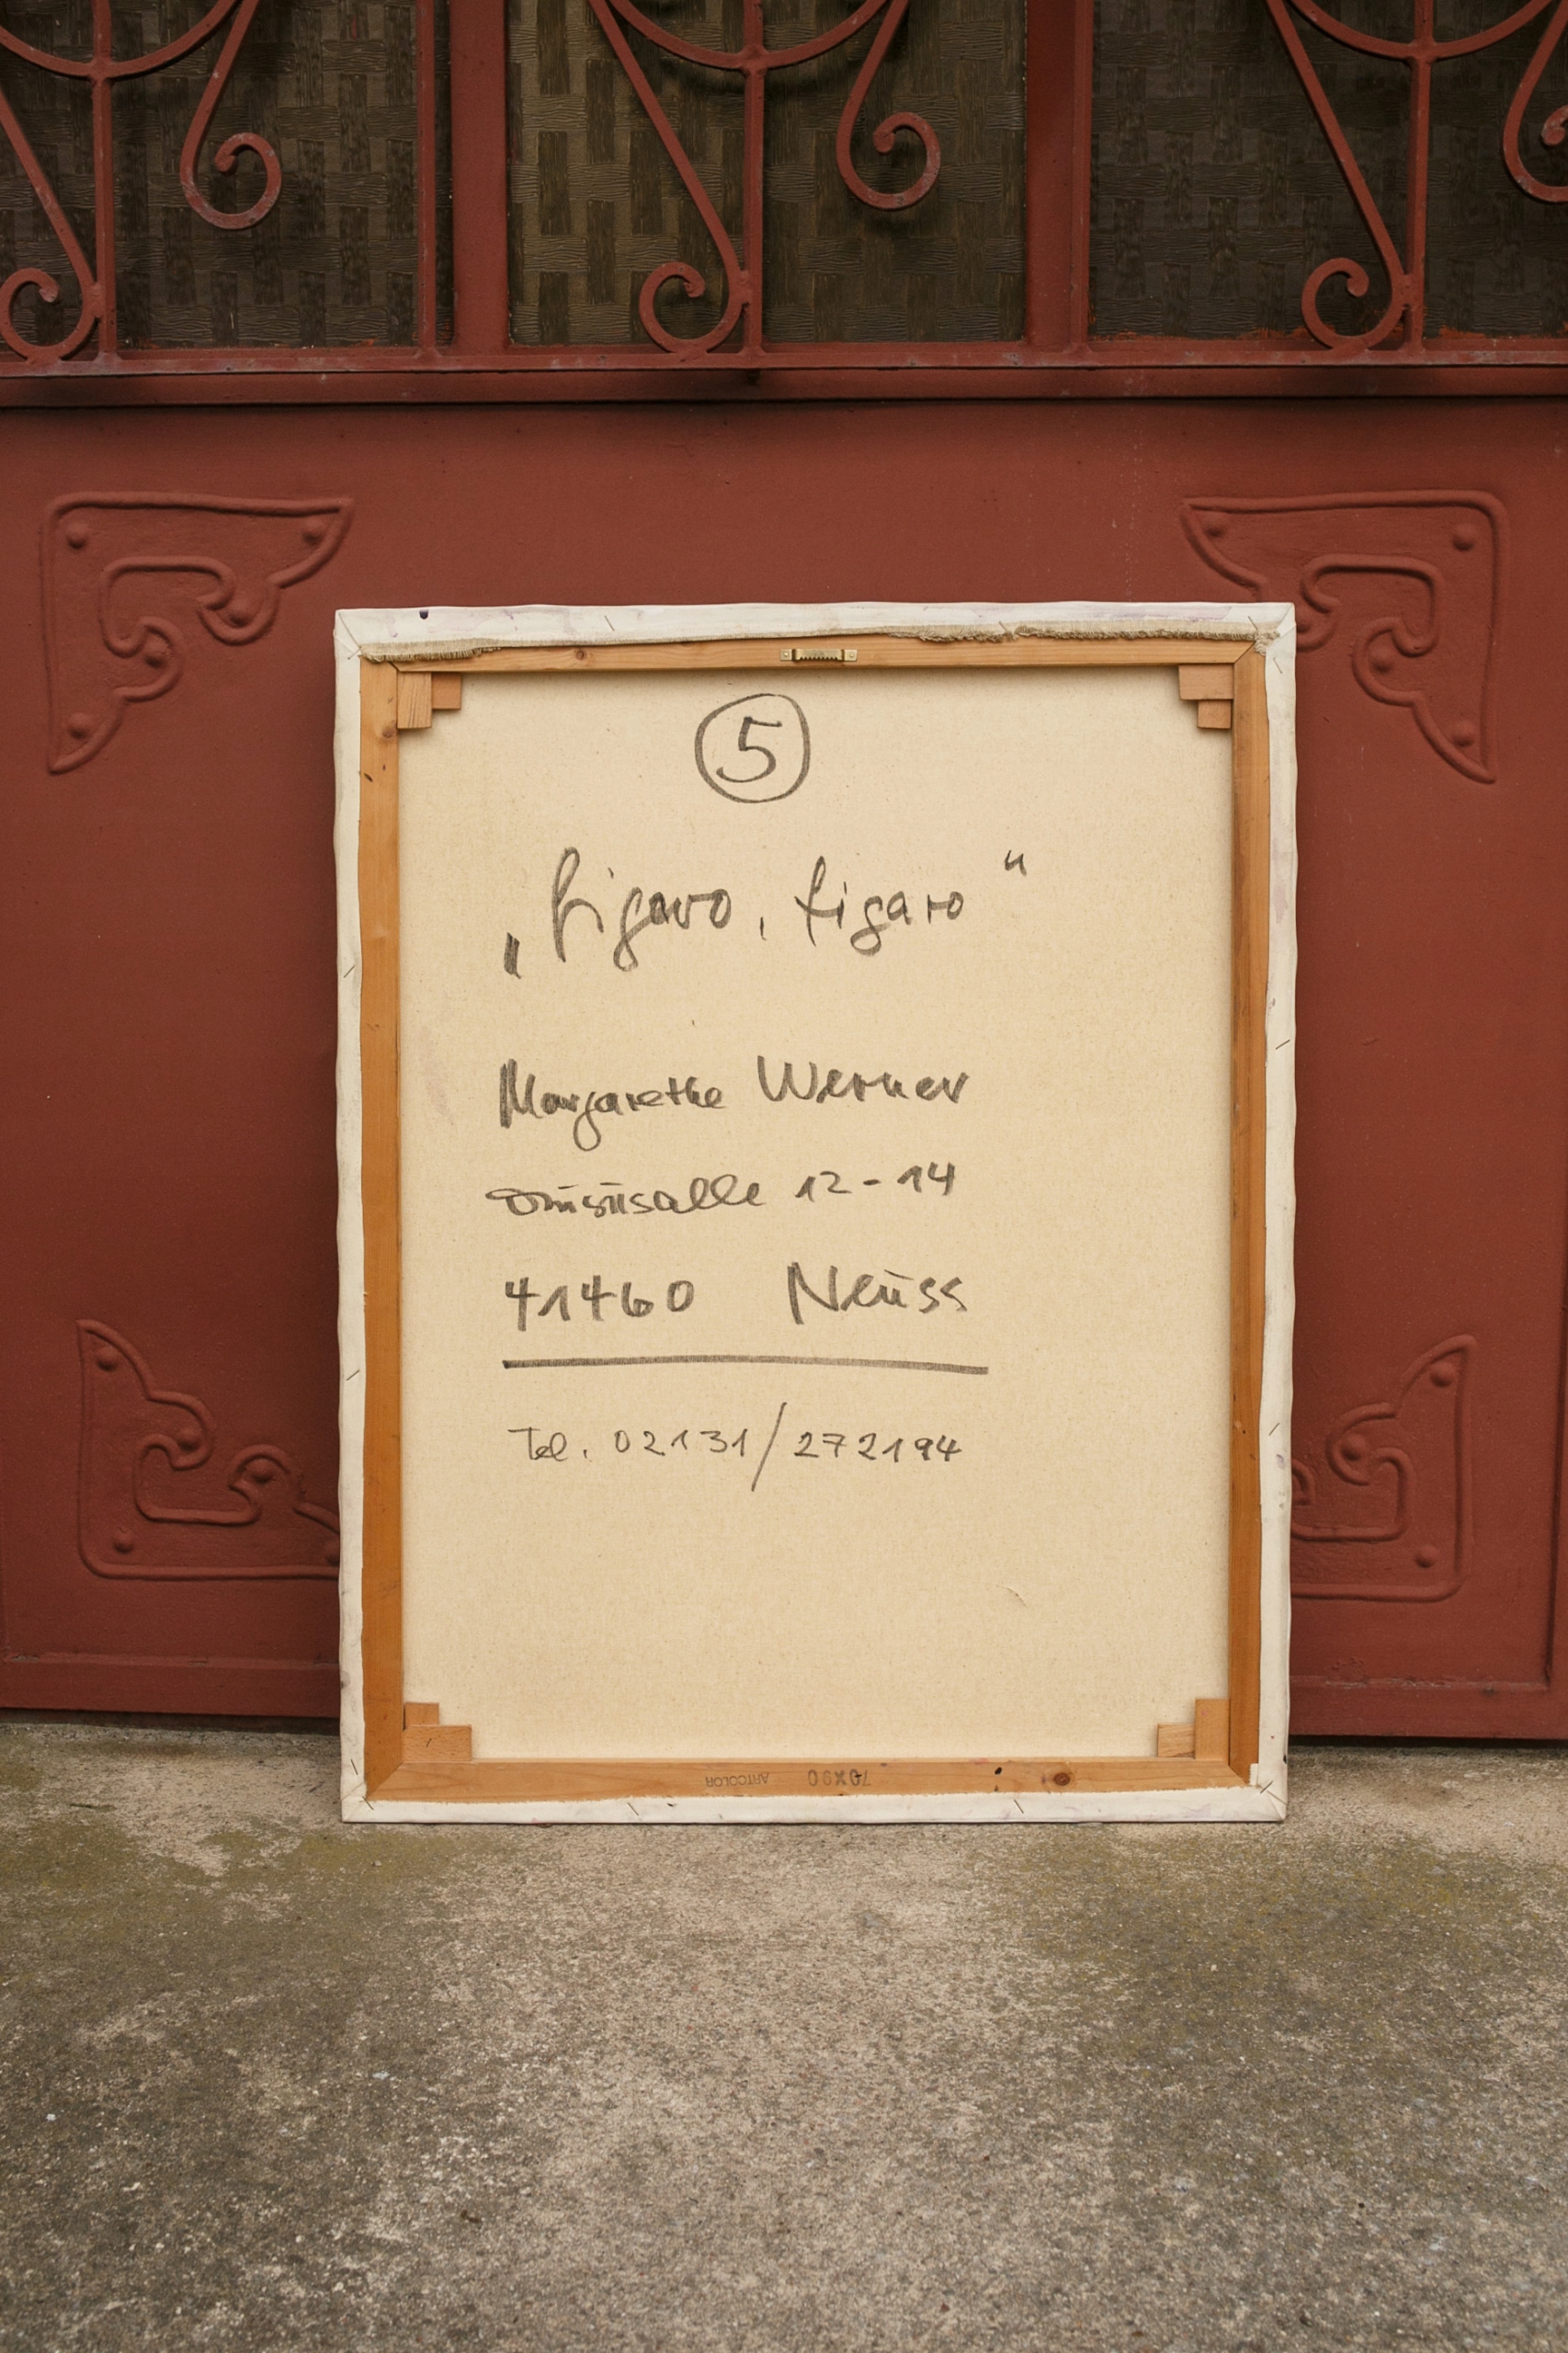 5
„Figaro, Figaro“
Margarethe Werner
Drususallee 12-14
41460 Neuss
Tel. 02131/272194
70X90 ARTCOLOR